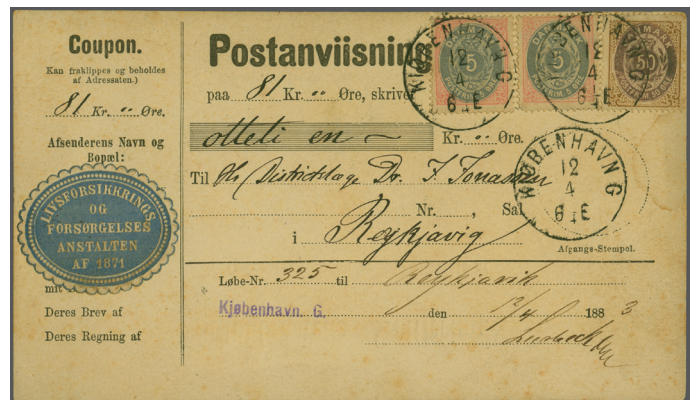 Coupon.
Kan fraklippes og beholdes
af Adressaten.)
81 Kr. " Øre.
Afsenderens Navn og
Bopæl:
LIVSFORSIKKRINGS
OG
FORSØRGELSES
ANSTALTEN
AF 1871
mit
Deres Brev af
Deres Regning af
Postanviisning
paa 81 Kr. " Øre, skriver
otteti en —
Kr. " Øre.
Til Hr. Districtslæge Dr. J. Jonassen
, Nr. , Sal
i Reykjavig
Afgangs-Stempol.
Løbe-Nr. 325 til Reykjavik
Kjøbenhavn. G.
den 12/4 1883
DANMARK
5
DANMARK
5
DANMARK
50
KJØBENHAVN G
12
4
6 E
KJØBENHAVN G
12
4
6 E
KJØBENHAVN G
12
4
6 E